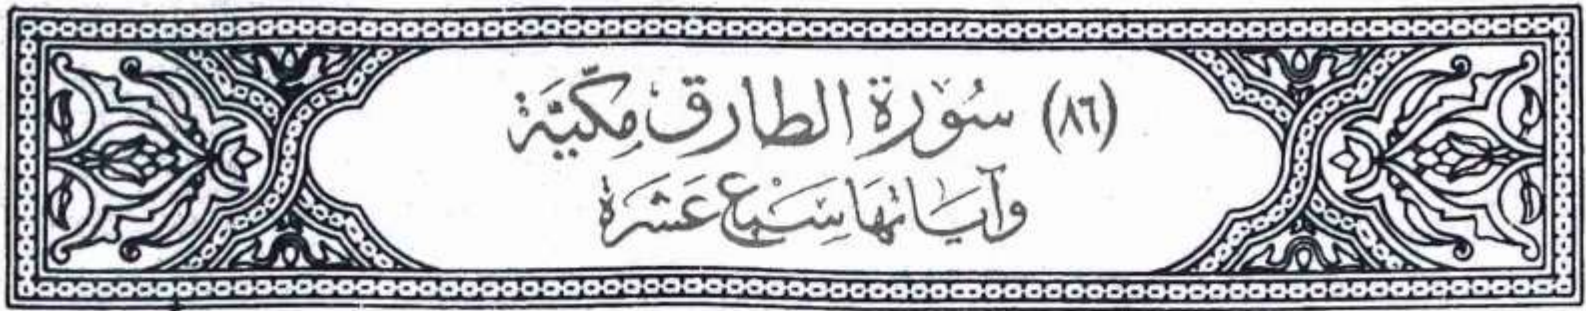 (٨٦) سُورَة الطارق مكيّة
وآيَاتهَا سَبْع عَشَرَة